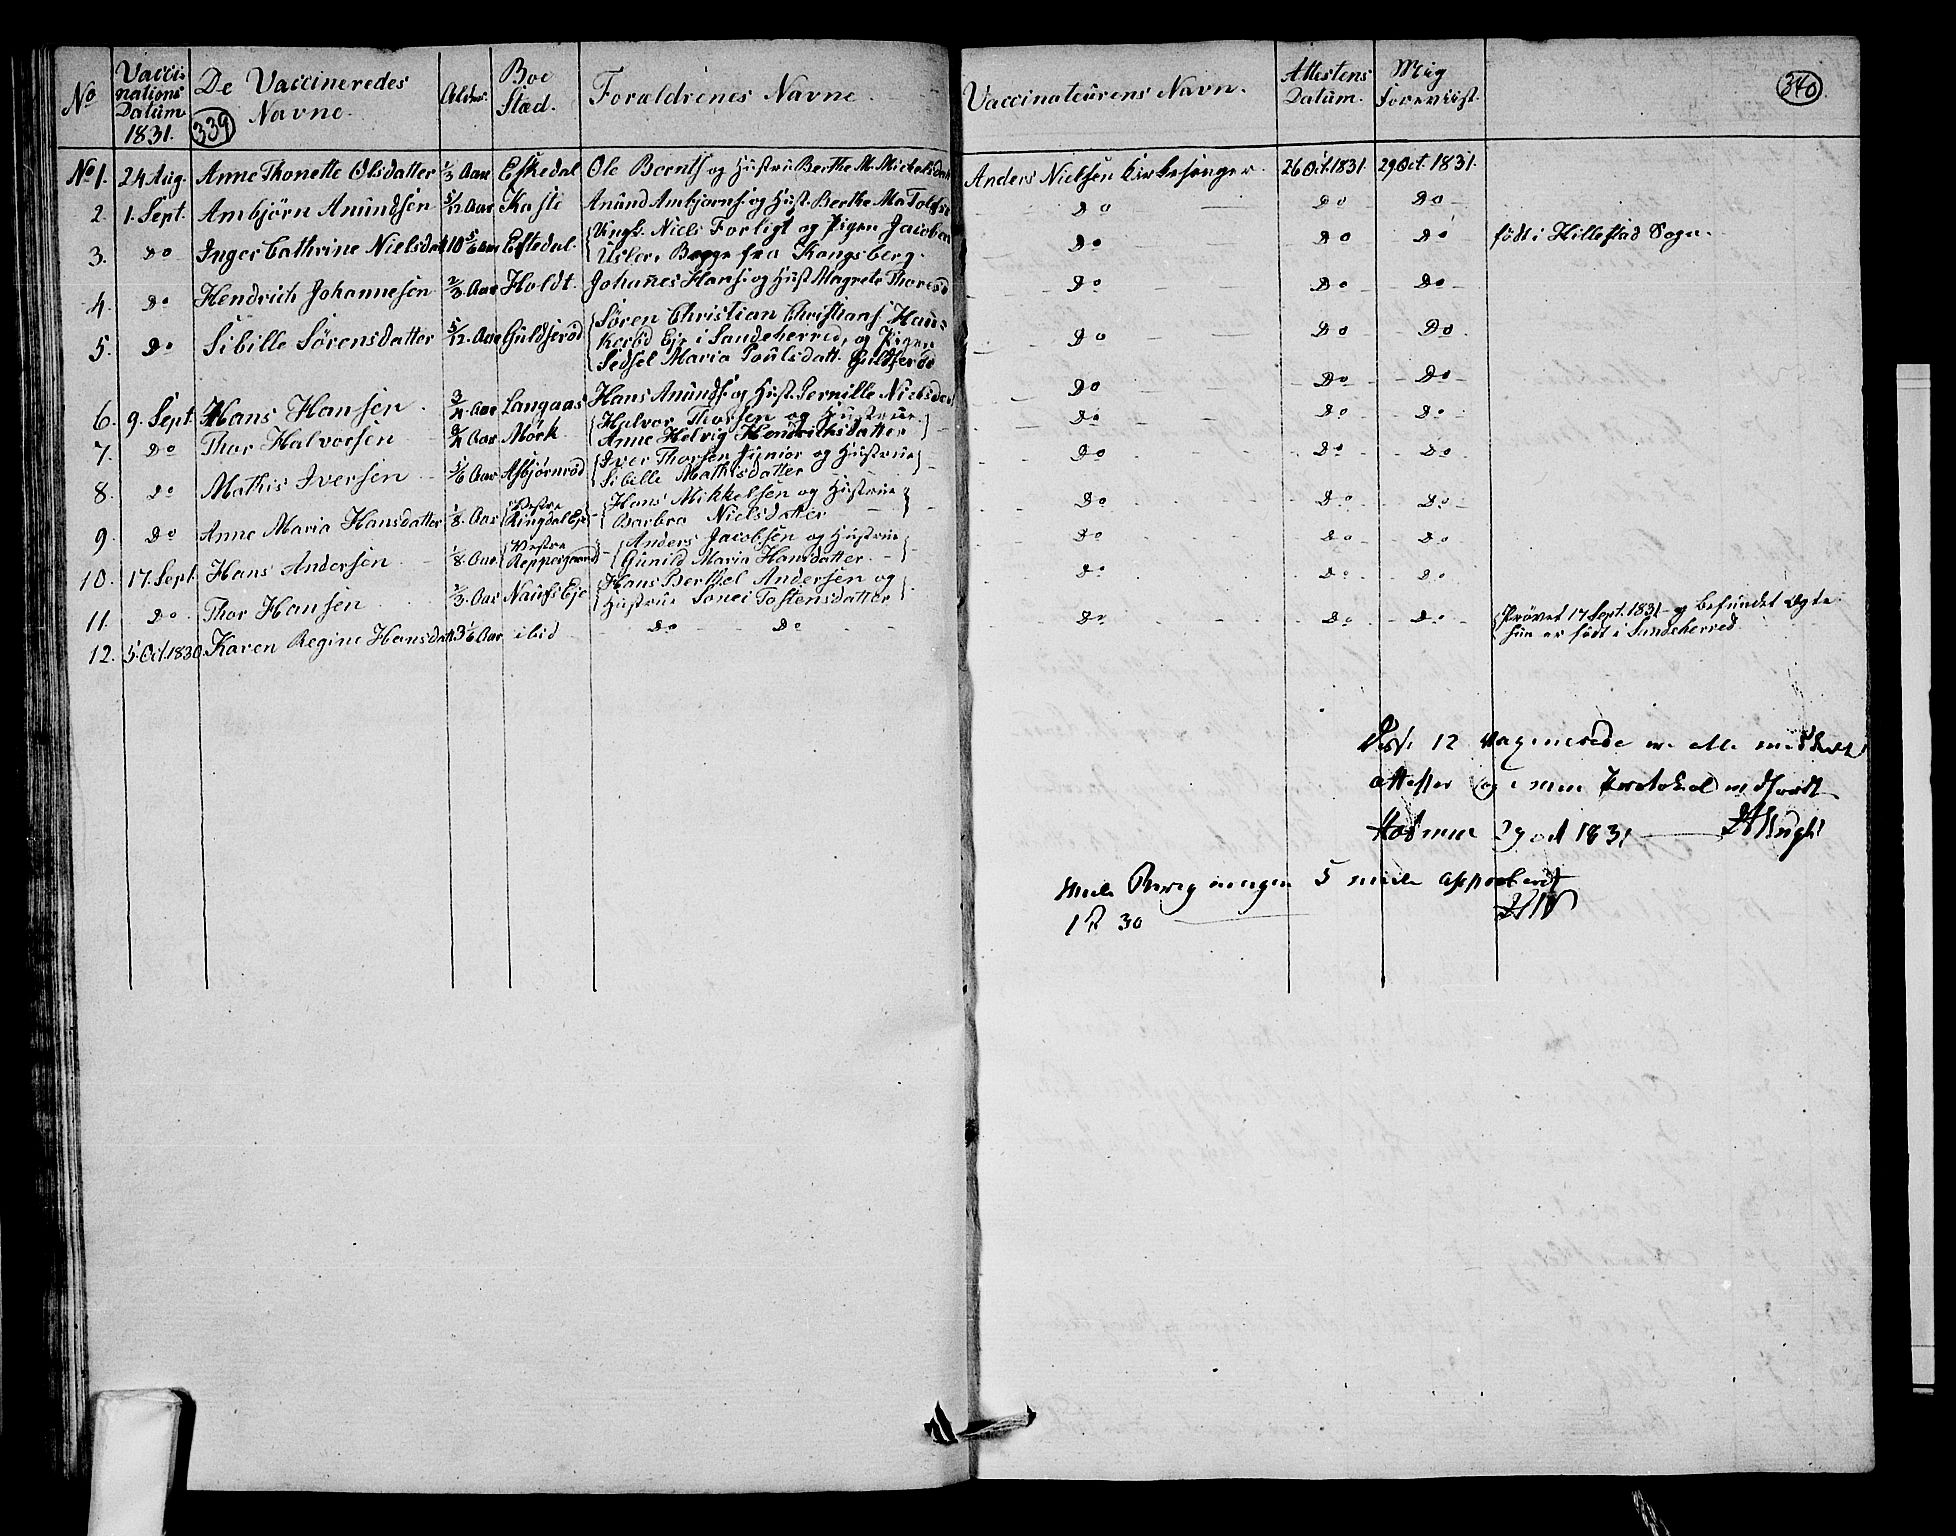 No Vaccinations Datum 1831. De Vaccineredes Navne. Alder. Boe Stæd. Forældrenes Navne.
339
No 1. 24 Aug. Anne Thonette Olsdatter 1/3 Aar Eskedal Ole Berents og Hustru Berthe M. Mickelsdat
2. 1. Sept. Ambjörn Anundsen 5/12 Aar Kaste Anund Ambjørns. og Hust. Berthe Ma Tolfse
3. Do Inger Cathrine Nielsdat 10 5/6 Aar Eskedal Ungk. Niels Forligt og Pigen Jacobea
Usler, Begge fra Kongsberg.
4. Do Hendrich Johannesen 2/3 Aar Holdt. Johanes Hans. og Hust Magrete Thoresd
5. Do Sibille Sörensdatter 5/12. Aar Guldserød Søren Christian Christians. Hans
Kerød Eje i Sandeherred, og Pigen
Sedsel Maria Poulsdatt. Guldserød
6. 9. Sept Hans Hansen 3/4 Aar Langaas Hans Anunds. og Hust. Pernille Nielsdat
7. Do Thor Halvorsen 3/4 Aar Mörk. Halvor Thorsen og Hustrue
Anne Helvig Hendrichsdatter
8. Do Mathis Iversen 1/6 Aar Asbjørnrød Iver Thorsen Junior og Hustrue
Sibille Mathisdatter
9. Do Anne Maria Hansdatter 1/8. Aar Vestre Ringdal Eje Hans Mikkelsen og Hustrue
Barbra Nielsdatter
10. 17. Sept Hans Andersen 1/8 Aar Vestre Reppesgaard Anders Jacobsen og Hustrue
Gunild Maria Hansdatter
11. Do Thor Hansen 2/3. Aar Naufs Eje Hans Berthel Andersen og
Hustrue Sonei Tostensdatter
12. 5. Oct. 1830. Karen Regine Hansdatt. 3 1/6 Aar ibid Do Do
340
Vaccinateurens Navn. Attestens Datum. Mig Foreviist.
Anders Nielsen Kirkesanger. 26 Oct. 1831 29 Oct. 1831.
Do Do Do
Do Do Do födt i Hillestad Sogn.
Do Do Do
Do Do Do
Do Do Do
Do Do Do
Do Do Do
Do Do Do
Do Do Do
Do Do Do
Do Do Do Prövet 17 Sept. 1831 og befundet Ægte
hun er födt i Sandeherred
12 Vaxinerede ere alle
Attester og i min Protokol indført
29 oct 1831
5 miile
1 30